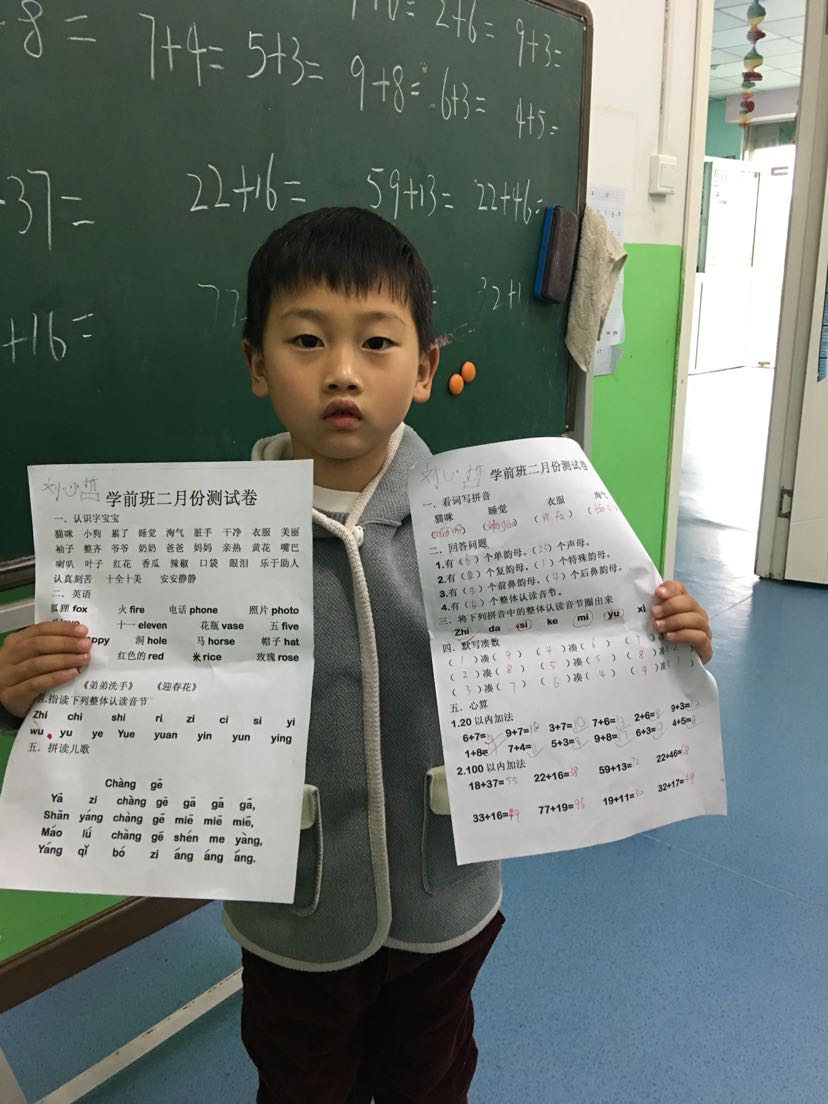 8 =
7+4=
5+3=
2+6=
9+3=
9+8=
6+3=
4+5=
37=
22+16=
59+13=
22+46=
+16=
学前班二月份测试卷
一．认识字宝宝
猫咪 小狗 累了 睡觉 淘气 脏手 干净 衣服 美丽
袖子 整齐 爷爷 奶奶 爸爸 妈妈 亲热 黄花 嘴巴
喇叭 叶子 红花 香瓜 辣椒 口袋 眼泪 乐于助人
认真刻苦 十全十美 安安静静
二．英语
狐狸 fox 火 fire 电话 phone 照片 photo
十一 eleven 花瓶 vase 五 five
洞 hole 马 horse 帽子 hat
红色的 red 米 rice 玫瑰 rose
《弟弟洗手》 《迎春花》
指读下列整体认读音节
Zhi chi shi ri zi ci si yi
wu yu ye Yue yuan yin yun ying
五．拼读儿歌
Chàng gē
Yā zi chàng gē gā gā gā,
Shān yáng chàng gē miē miē miē,
Máo lǘ chàng gē shén me yàng,
Yáng qǐ bó zi áng áng áng.
学前班二月份测试卷
一．看词写拼音
猫咪 睡觉 衣服 淘气
二．回答问题
1.有（6）个单韵母，（23）个声母。
2.有（8）个复韵母，（1）个特殊韵母。
3.有（5）个前鼻韵母，（4）个后鼻韵母。
4.有（16）个整体认读音节。
三．将下列拼音中的整体认读音节圈出来
Zhi da si ke mi yu xi
四．默写凑数
（1）凑（9） （4）凑（6） （7）凑
（2）凑（8） （5）凑（5） （8）凑（2）
（3）凑（7） （6）凑（4） （9）凑（1）
五．心算
1.20 以内加法
6+7= 9+7=16 3+7=10 7+6= 2+6=8 9+3=12
1+8= 7+4= 5+3=8 9+8=17 6+3= 4+5=
2.100 以内加法
18+37=55 22+16=38 59+13=72 22+46=68
33+16=49 77+19=96 19+11=30 32+17=49